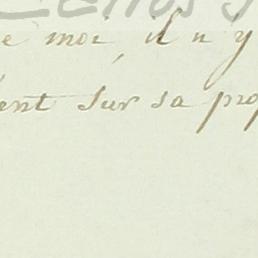 e moi, il n'y
ent sur sa pro